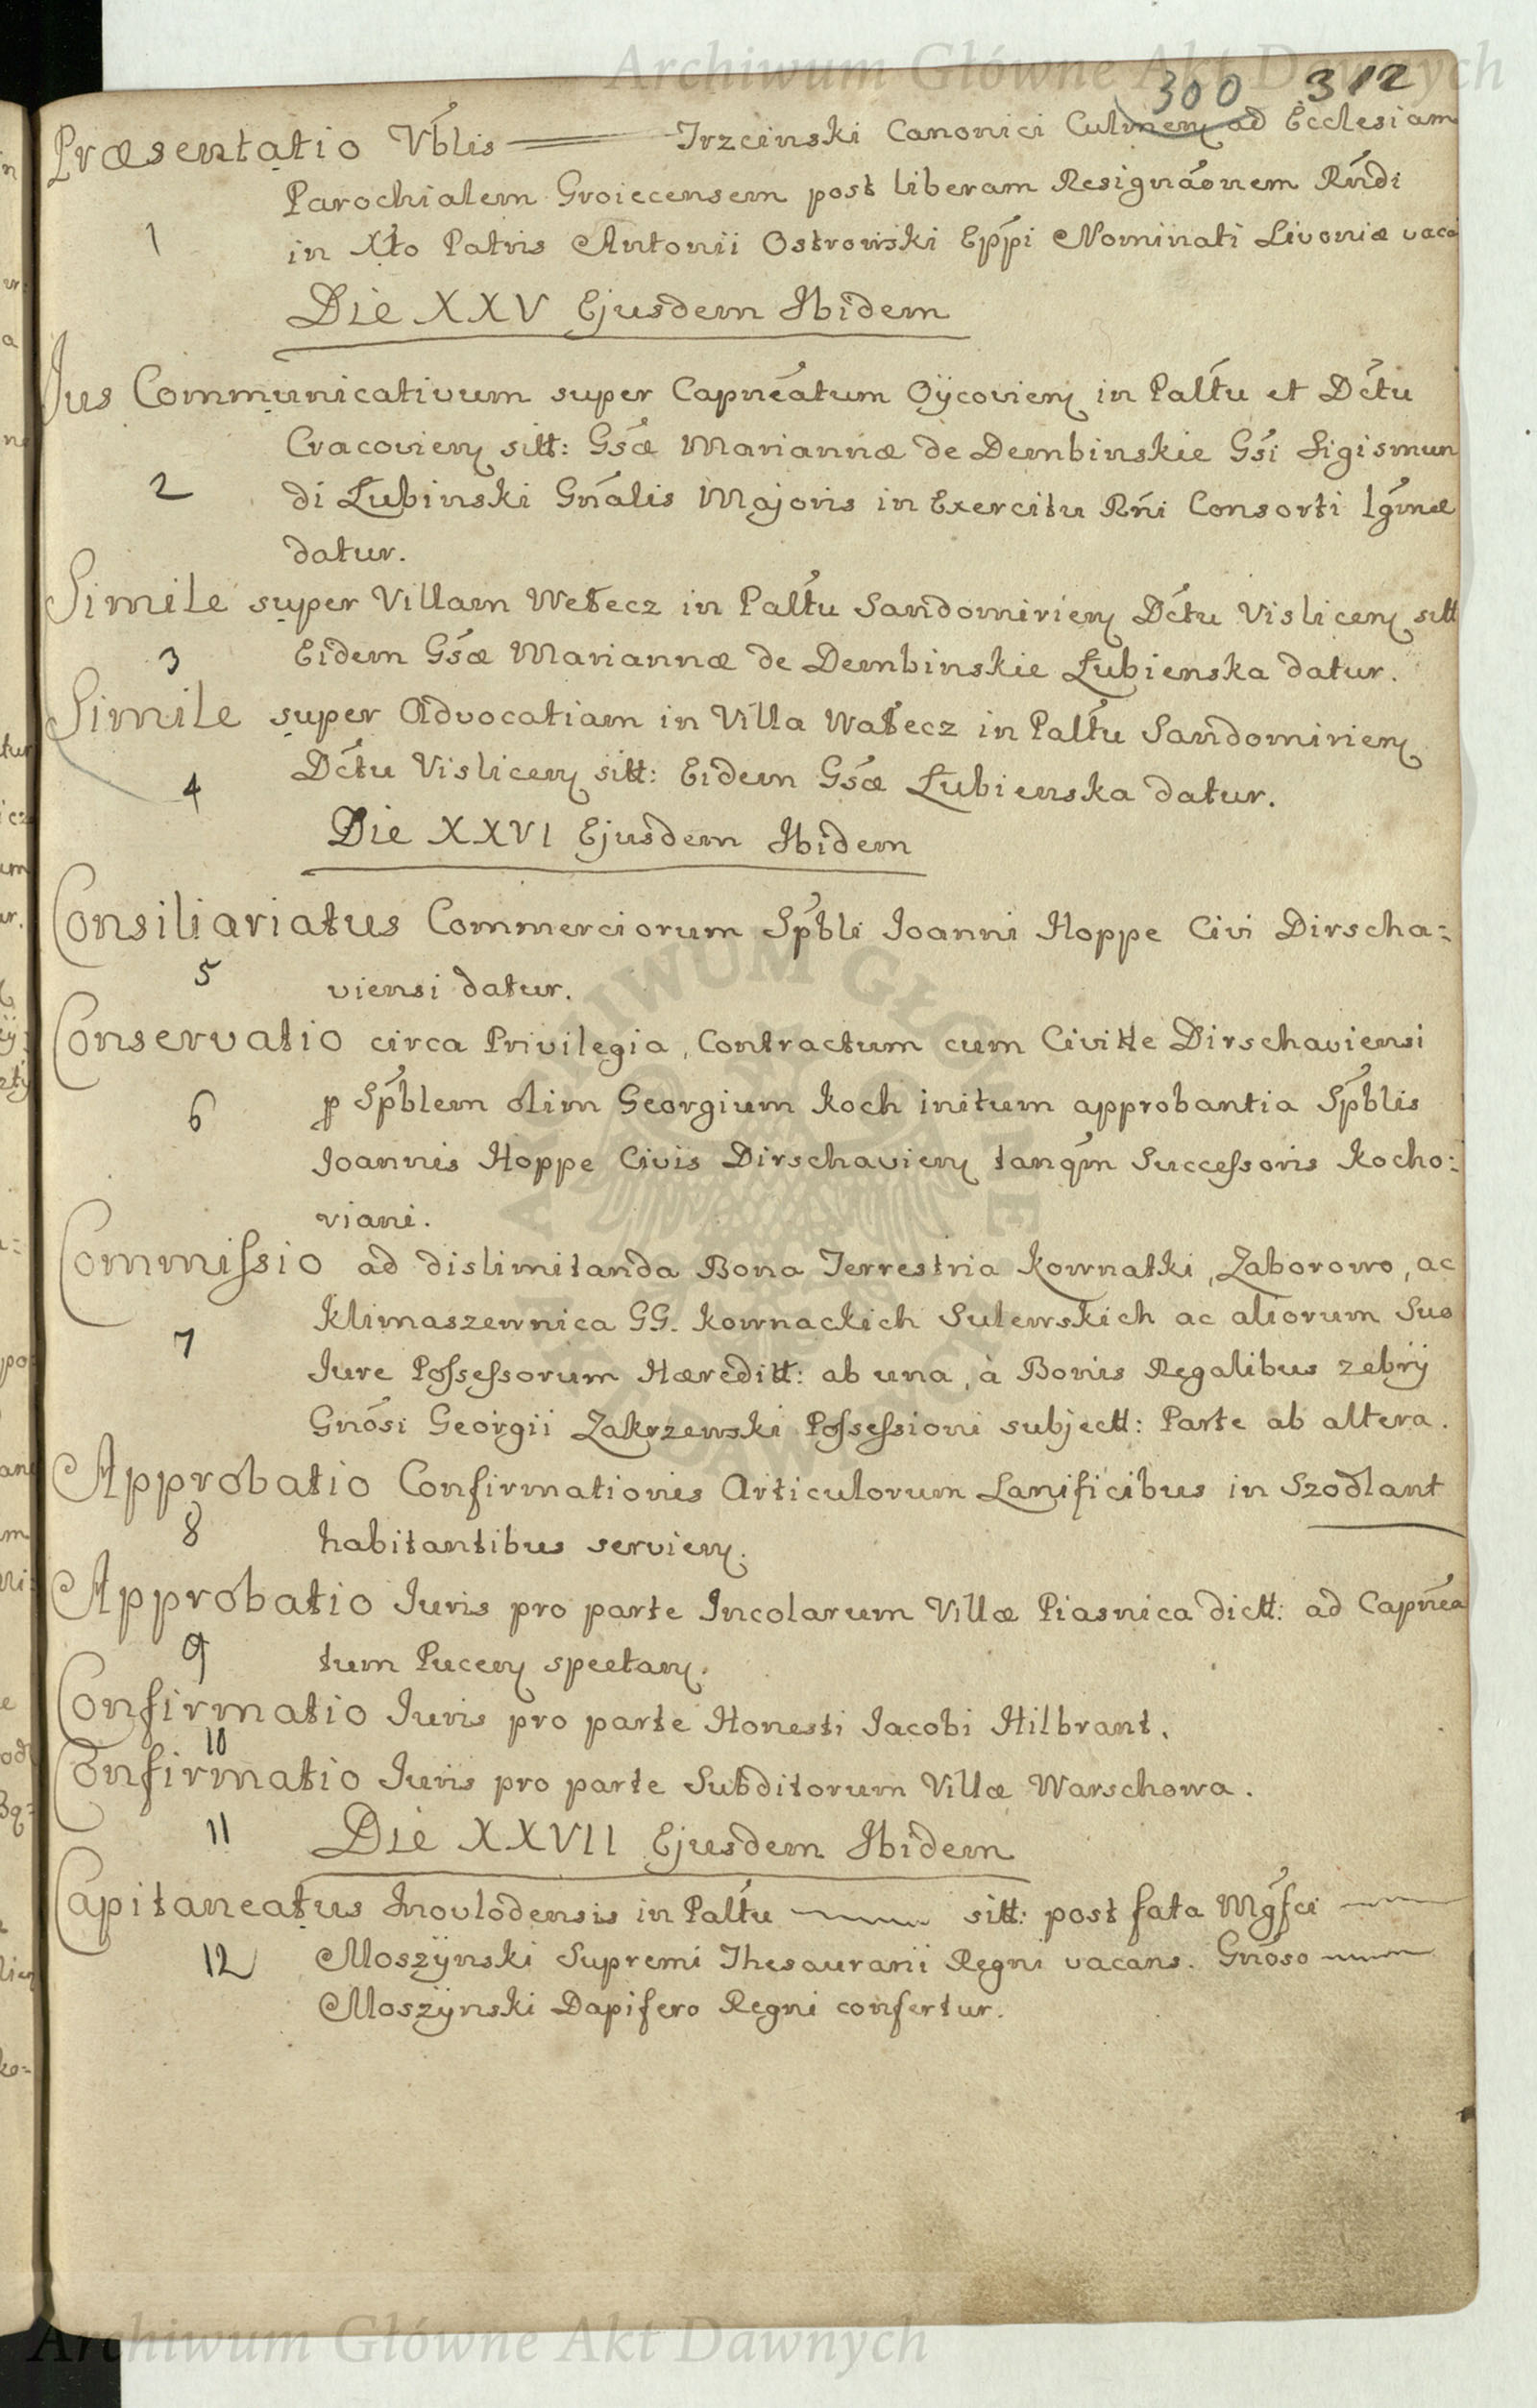 Archiwum Główne Akt Dawnych
300 312
Præsentatio Vblis Trzcinski Canonici Culmen ad Ecclesiam
Parochialem Groiecensem post liberam Resignãonem Rńdi
1
in Xto Patris Antonii Ostrowski Eppi Nominati Livoniæ vaca
Die XXV Ejusdem Ibidem
Jus Communicativum super Capneatum Oÿcovien in Paltu et Dctu
Cracovien sitt: Gsæ Mariannæ de Dembinskie Gsi Sigismun
2
di Łubinski Gnalis Majoris in Exercitu Rni Consorti
datur.
Simile super Villam Wełecz in Paltu Sandomirien Dctu Vislicen sitt
3
Eidem Gsæ Mariannæ de Dembinskie Łubienska datur.
Simile super Advocatiam in Villa Wałecz in Paltu Sandomirien
Dctu Vislicen sitt: Eidem Gsæ Łubienska datur.
4
Die XXVI Ejusdem Ibidem
Consiliariatus Commerciorum Spbli Joanni Hoppe Civi Dirscha:
5
viensi datur.
Conservatio circa Privilegia, Contractum cum Civitte Dirschaviensi
6
p Spblem olim Georgium Koch initum approbantia Spblis
Joannis Hoppe Civis Dirschavien tanqm Successoris Kocho:
viani.
Commissio ad dislimitanda Bona Terrestria Kownatki, Zaborowo, ac
Klimaszewnica GG. Kownackich Sulewskich ac aliorum Suo
7
Jure Possessorum Hæreditt: ab una, à Bonis Regalibus Zebrÿ
Gnosi Georgii Zakrzewski Possessioni subjectt: Parte ab altera.
Approbatio Confirmationis Articulorum Lanificibus in Szodlant
8
habitantibus servien.
Approbatio Juris pro parte Incolarum Villæ Piasnica dictt: ad Capnea
9
tum Pucen spectan.
Confirmatio Juris pro parte Honesti Jacobi Hilbrant.
10
Confirmatio Juris pro parte Subditorum Villæ Warschowa.
11
Die XXVII Ejusdem Ibidem
Capitaneatus Inovlodensis in Paltu sitt: post fata Mgfci
12
Moszÿnski Supremi Thesaurarii Regni vacans. Gnoso
Moszÿnski Dapifero Regni confertur.
Archiwum Główne Akt Dawnych